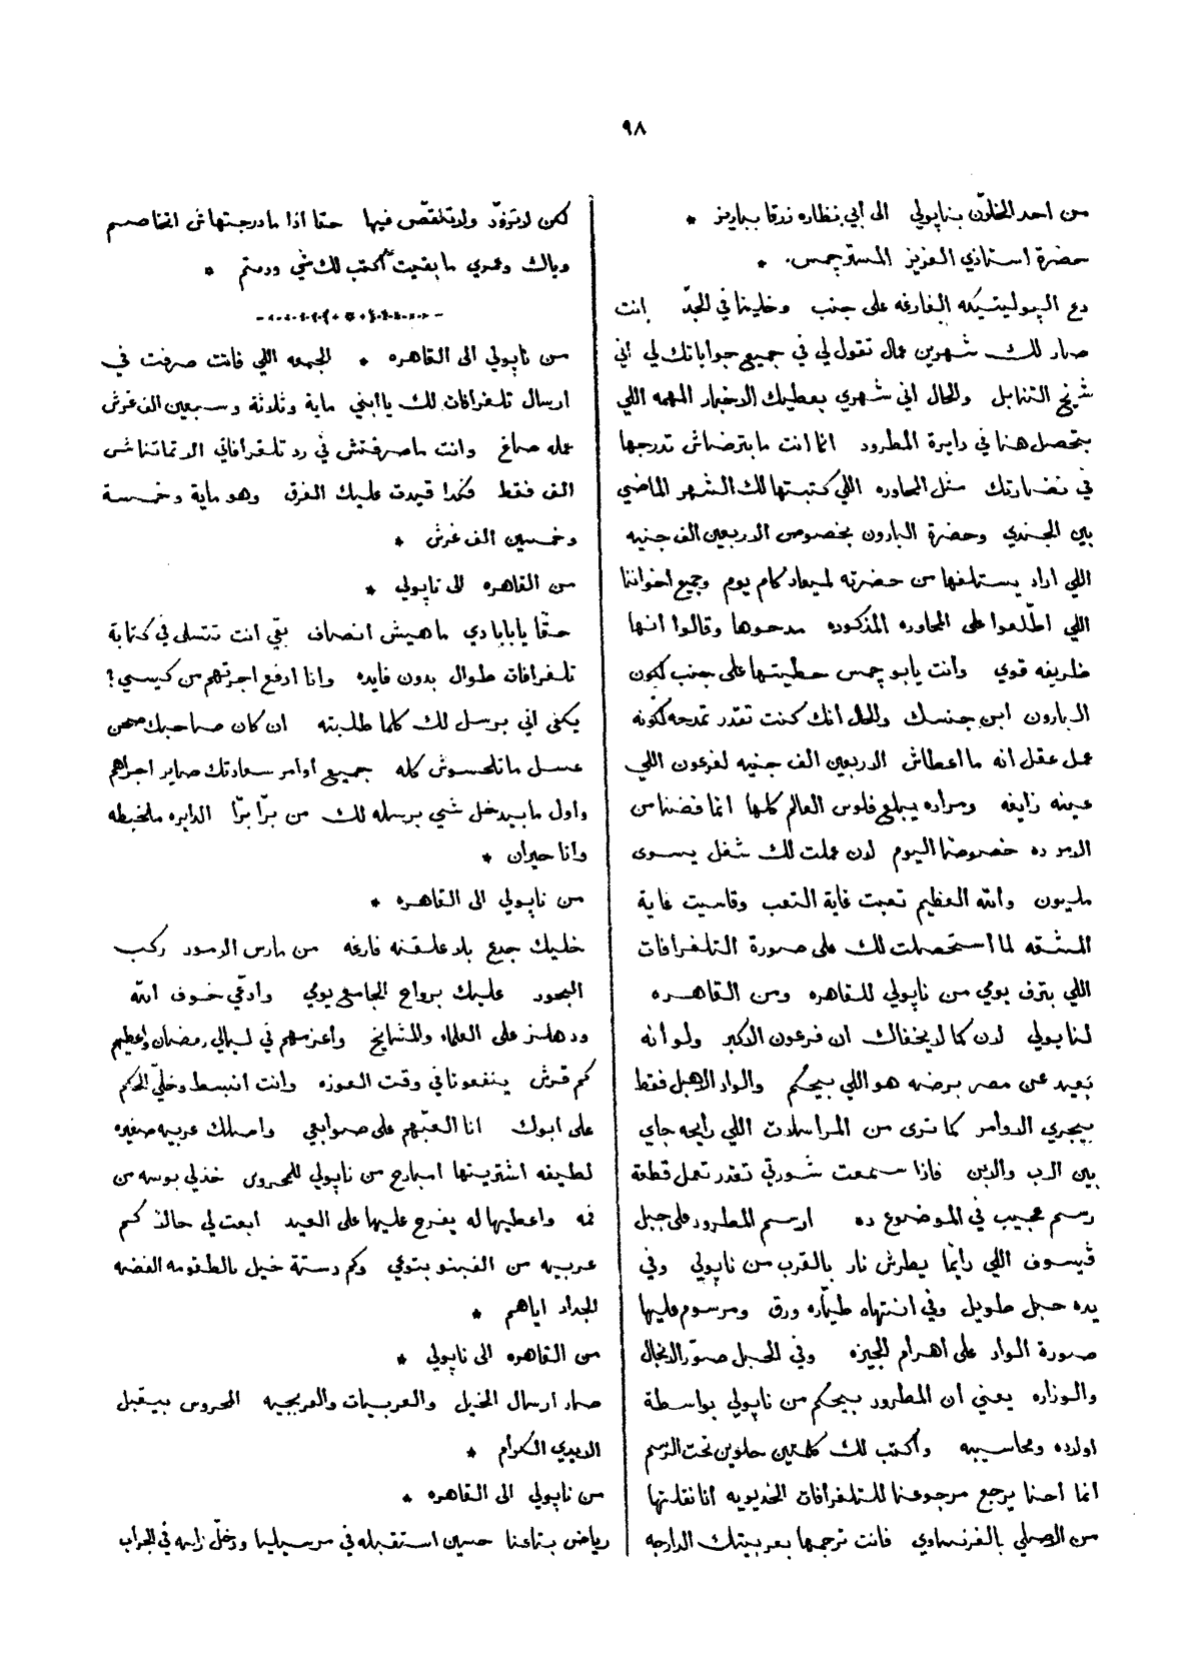 ٩٨
من احد الخلان بنابولي الى أبي نظاره زرقا بباريز *
حضرة استاذي العزيز المستر جمس . *
دع البوليتيكه الفارغه على جنب وخلينا في الجدّ انت
صار لك شهرين عمال تقول لي في جميع جواباتك لي اني
شيخ التنابل والحال اني شهري بعطيك الاخبار المهمه اللي
بتحصل هنا في دايرة المطرود انما انت ما بترضاش تدرجها
في نضارتك مثل المحاوره اللي كتبتها لك الشهر الماضي
بين الجندي وحضرة البارون بخصوص الاربعين الف جنيه
اللي اراد يستلفها من حضرته لميعاد كام يوم وجميع اخواننا
اللي اطّلعوا على المحاوره المذكوره مدحوها وقالوا انها
ظريفه قوي وانت يابو جمس حطيتها على جنب لكون
البارون ابن جنسك والحال انك كنت تقدر تمدحه لكونه
عمل عقل انه ما اعطاش الاربعين الف جنيه لفرعون اللي
عينه زايغه ومراده يبلع فلوس العالم كلها انما فضنا من
الامر ده خصوصا اليوم لان عملت لك شغل يسوى
مليون والله العظيم تعبت غاية التعب وقاسيت غاية
المشقه لما استحصلت لك على صورة التلغرافات
اللي بترف يومي من نابولي للقاهره ومن القاهره
لنابولي لان كما لا يخفاك ان فرعون الاكبر ولو أنه
بعيد عن مصر برضه هو اللي بيحكم والواد الاهبل فقط
بيجري الاوامر كما ترى من المراسلات اللي رايحه جاي
بين الاب والابن فاذا سمعت شورتي تقدر تعمل قطعة
رسم عجيب في الموضوع ده ارسم المطرود على جبل
فيسوف اللي دايما يطرش نار بالقرب من نابولي وفي
يده حبل طويل وفي انتهاه طيّاره ورق ومرسوم فيها
صورة الواد على أهرام الجيزه وفي الحبل صوّر الانجال
والوزاره يعني أن المطرود بيحكم من نابولي بواسطة
اولاده ومحاسيبه وأكتب لك كلمتين حلوين تحت الرسم
انما أحنا يرجع مرجوعنا للتلغرافات الخديويه أنا نقلتها
من الاصلي بالفرنساوي فانت ترجمها بعربيتك الدارجه
لكن لا تزوّد ولا تنقّص فيها حقا اذا ما درجتهاش اتخاصم
وياك وعمري ما بقيت أكتب لك شي ودمتم *
من نابولي الى القاهره * الجمعه اللي فاتت صرفت في
ارسال تلغرافات لك يا ابني ماية وثلاثة وسبعين الف غرش
عمله صاغ وانت ما صرفتش في رد تلغرافاتي الا تمانتاشر
الف فقط فكدا قيدت عليك الفرق وهو ماية وخمسة
وخمسين الف غرش *
من القاهره الى نابولي *
حقّا يا بابا دي ماهيش انصاف بقي انت تتسلى في كتابة
تلغرافات طوال بدون فايده وانا ادفع اجرتهم من كيسي ؟
يكفى اني برسل لك كلما طلبته ان كان صاحبك صحن
عسل ما تلحسوش كله جميع أوامر سعادتك صاير اجراهم
وأول ما بيدخل شي برسله لك من برّا برّا الدايره ملخبطه
وانا حيران *
من نابولي الى القاهره *
خليك جدع بلا علقنه فارغه من مارس الامور ركب
البحور عليك برواح الجامع يومي وادّعي خوف الله
ودهلز على العلماء والمشايخ وأعزمهم في ليالي رمضان وأعطيهم
كم قرش ينفعونا في وقت العوزه وانت انبسط وخليّ الحكم
على ابوك انا العبّهم على صوابعي واصلك عربيه صغيره
لطيفه اشتريتها امبارح من نابولي للمحروس خذ لي بوسه من
فمه واعطيها له يفرح عليها على العيد ابعت لي حالا كم
عربيه من الفينو بتوعي وكم دستة خيل بالطقومه الفضه
الجداد اياهم *
من القاهره الى نابولي *
صار ارسال الخيل والعربيات والعربجيه المحروس بيقبل
الايدي الكرام *
من نابولي الى القاهره *
رياض بتاعنا حسين استقبله في مرسيليا ودخّل راسه في الجراب